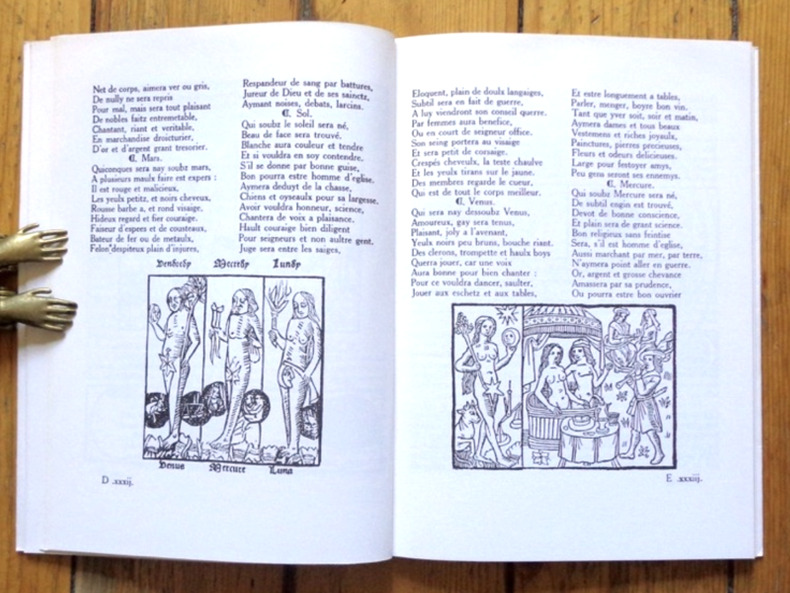 Net de corps, aimera ver ou gris,
De nully ne sera repris
Pour mal, mais sera tout plaisant
De nobles faitz entremetable,
Chantant, riant et veritable,
En marchandise droicturier,
D'or et d'argent grant tresorier.
⁋. Mars.
Quiconques sera nay soubz mars,
A plusieurs maulx faire est expers :
Il est rouge et malicieux,
Les yeulx petitz, et noirs cheveux,
Rousse barbe a, et rond visage,
Hideux regard et fier courage.
Faiseur d'espees et de cousteaux,
Bateur de fer ou de metaulx,
Felon despiteux plain d'injures,
Respandeur de sang par battures,
Jureur de Dieu et de ses sainctz,
Aymant noises, debats, larcins.
⁋. Sol.
Qui soubz le soleil sera né,
Beau de face sera trouvé.
Blanche aura couleur et tendre
Et si vouldra en soy contendre,
S'il se donne par bonne guise,
Bon pourra estre homme d'eglise.
Aymera deduyt de la chasse,
Chiens et oyseaulx pour sa largesse,
Avoir vouldra honneur, science,
Chantera de voix a plaisance.
Hault couraige bien diligent
Pour seigneurs et non aultre gent.
Juge sera entre les saiges,
Vendredy Mercredy Lundy
Venus Mercure Luna
D .xxxij.
Eloquent, plain de doulx langaiges,
Subtil sera en fait de guerre,
A luy viendront son conseil querre.
Par femmes aura benefice,
Ou en court de seigneur office.
Son seing portera au visaige
Et sera petit de corsaige.
Crespés cheveulx, la teste chaulve
Et les yeulx tirans sur le jaune.
Des membres regarde le cueur,
Qui est de tout le corps meilleur.
⁋. Venus.
Qui sera nay dessoubz Venus,
Amoureux, gay sera tenus,
Plaisant, joly a l'avenant,
Yeulx noirs peu bruns, bouche riant.
Des clerons, trompette et haulx boys
Querra jouer, car une voix
Aura bonne pour bien chanter :
Pour ce vouldra dancer, saulter,
Jouer aux eschetz et aux tables,
Et estre longuement a tables,
Parler, menger, boyre bon vin.
Tant que yver soit, soir et matin,
Aymera dames et tous beaux
Vestemens et riches joyaulx,
Painctures, pierres precieuses,
Fleurs et odeurs delicieuses.
Large pour festoyer amys,
Peu gens seront ses ennemys.
⁋. Mercure.
Qui soubz Mercure sera né,
De subtil engin est trouvé,
Devot de bonne conscience,
Et plain sera de grant science.
Bon religieux sans feintise
Sera, s'il est homme d'eglise,
Aussi marchant par mer, par terre,
N'aymera point aller en guerre.
Or, argent et grosse chevance
Amassera par sa prudence,
Ou pourra estre bon ouvrier
E .xxxiij.